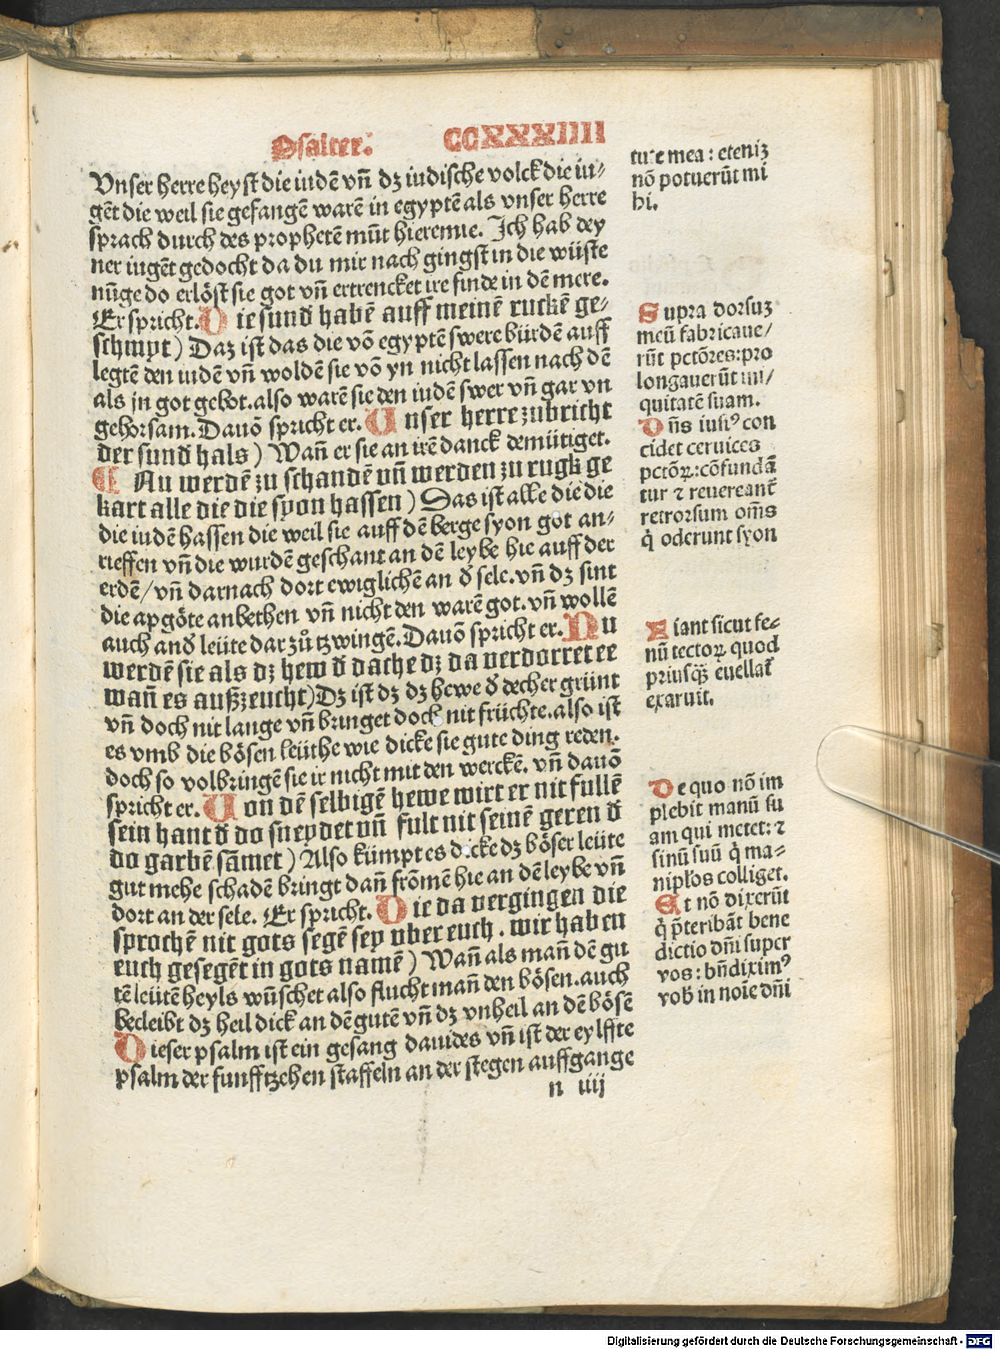 Psalter. CCXXXIIII
Vnser herre heyst die iudē vñ dz iudische volck die iu-
gēt die weil sie gefangē warē in egyptē als vnser herre
sprach durch des prophetē mūt hieremie. Ich hab dey
ner iugēt gedocht da du mir nach gingst in die wüste
nūge do erlöst sie got vñ ertrencket ire finde in dē mere.
Er spricht. Die sund habē auff meinē ruckē ge-
schmyt) Daz ist das die vō egyptē swere bürden auff
legtē den iudē vñ woldē sie vō yn nicht lassen nach dē
als jn got gebot. also warē sie den iudē swer vñ gar vn
gehorsam. Dauō spricht er. Unser herre zubricht
der sund hals) Wañ er sie an irē danck demütiget.
¶ Nu werdē zu schandē vñ werden zu rugk ge
kart alle die die syon hassen) Das ist alle die die
die iudē hassen die weil sie auff dē berge syon got an-
rieffen vñ die wurdē geschant an dē leybe hie auff der
erdē/ vñ darnach dort ewiglichē an đ sele. vñ dz sint
die apgöte anbethen vñ nicht den warē got. vñ wollē
auch anđ leüte dar zů tzwingē. Dauō spricht er. Nu
werdē sie als dz hew đ dache dz da verdorret ee
wañ es außzeucht) Dz ist dz dz hewe đ decher grünt
vñ doch nit lange vñ bringet dock nit früchte. also ist
es vmb die bösen leüthe wie dicke sie gute ding reden.
doch so volbringē sie ir nicht mit den werckē. vñ dauō
spricht er. Uon dē selbigē hewe wirt er nit fullē
sein hant đ do sneydet vñ fult nit seinē geren đ
do garbē sāmet) Also kümpt es dicke dz böser leüte
gut mehe schadē bringt dañ frōmē hie an dē leybe vñ
dort an der sele. Er spricht. Die da vergingen die
sprochē nit gots segē sey vber euch. wir haben
euch gesegēt in gots namē) Wañ als mañ dē gu
tē leütē heyls wūschet also flucht mañ den bösen. auch
becleibt dz heil dick an dē gutē vñ dz vnheil an dē bösē
Dieser psalm ist ein gesang dauides vñ ist der eylffte
psalm der funfftzehen staffeln an der stegen auffgange
n iiij
tute mea: eteniz
nō potuerūt mi
hi.
Supra dorsuz
meū fabricaue/
rūt pctōres: pro
longauerūt ini/
quitatē suam.
Dñs iustꝰ con
cidet ceruices
pctōꝝ: cōfundā
tur ⁊ reuereant̄
retrorsum om̄s
q̇ oderunt syon
Fiant sicut fe-
nū tectoꝝ quod
priusq̄ꝫ euellat̄
exaruit.
De quo nō im
plebit manū su
am qui metet: ⁊
sinū suū q̇ ma-
nipl̵os colliget.
Et nō dixerūt
q̇ p̄teribāt bene
dictio dñi super
vos: bñdiximꝰ
vob̵ in noīe dñi
Digitalisierung gefördert durch die Deutsche Forschungsgemeinschaft - DFG